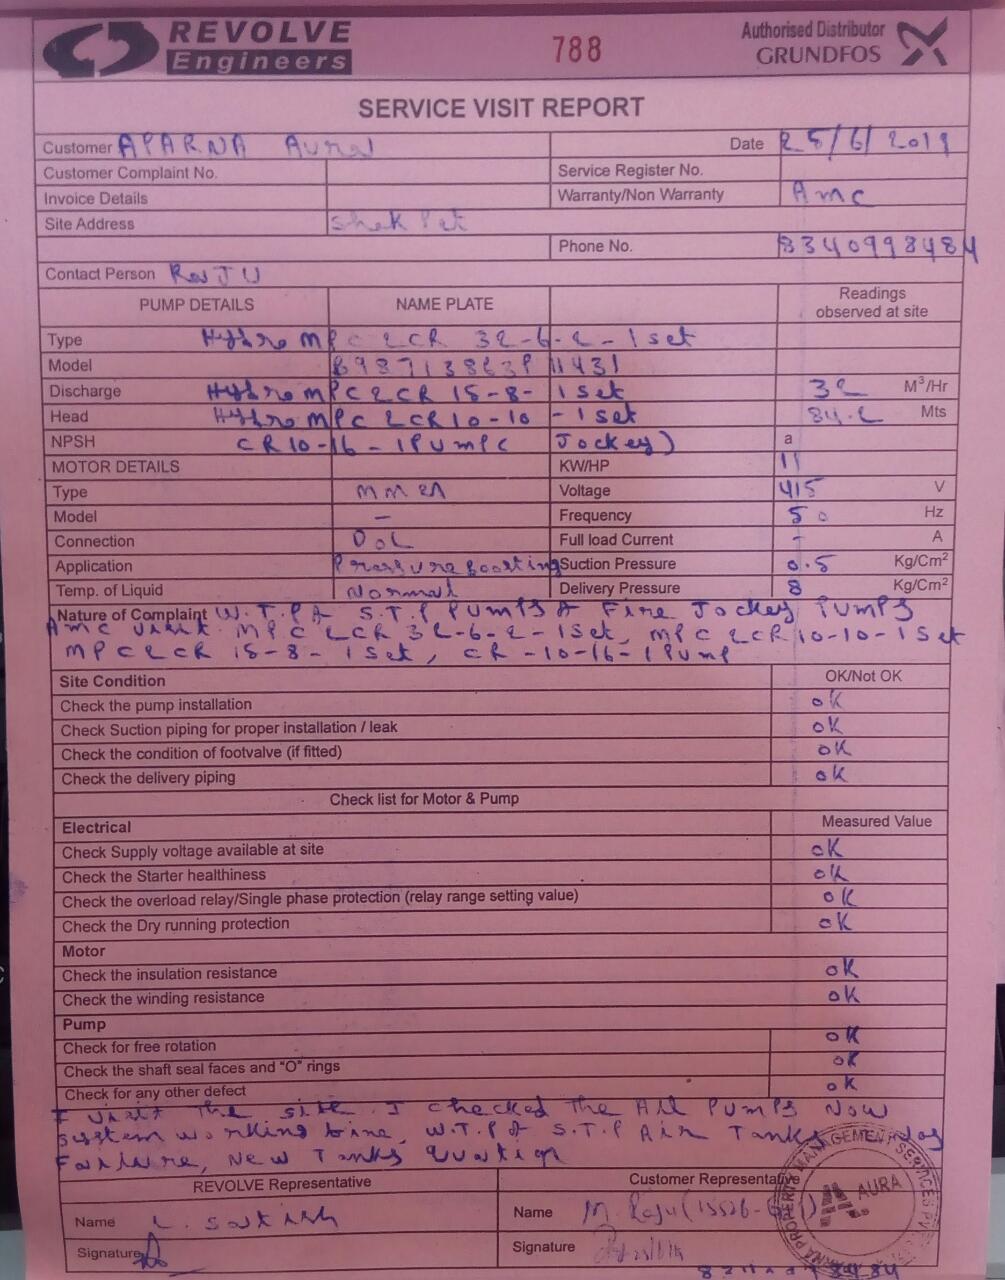 REVOLVE
Engineers
788
Authorised Distributor
GRUNDFOS
SERVICE VISIT REPORT
Customer APARNA Aura Date 25/6/2019
Customer Complaint No. Service Register No.
Invoice Details Warranty/Non Warranty Amc
Site Address Shek Pet
Phone No. 8340998484
Contact Person RaJU
PUMP DETAILS NAME PLATE Readings observed at site
Type Hydro MPC 2CR 32-6-2-1set
Model
Discharge Hydro MPC 2CR 15-8-1set 32 M³/Hr
Head Hydro MPC 2CR10-10-1set 84.2 Mts
NPSH CR10-16-1PUMPC Jockey) a
MOTOR DETAILS KW/HP 11
Type Voltage 415 V
Model - Frequency 50 Hz
Connection DOL Full load Current - A
Application Pressure Boosting Suction Pressure 0.5 Kg/Cm²
Temp. of Liquid Normal Delivery Pressure 8 Kg/Cm²
Nature of Complaint W.T.P & S.T.P PUMPS & Fire Jockey PUMPS
AMC Visit. MPC 2CR 32-6-2-1set, MPC 2CR10-10-1set
MPC2CR 15-8-1set, CR-10-16-1PUMP
Site Condition OK/Not OK
Check the pump installation ok
Check Suction piping for proper installation / leak ok
Check the condition of footvalve (if fitted) ok
Check the delivery piping ok
Check list for Motor & Pump
Electrical Measured Value
Check Supply voltage available at site ok
Check the Starter healthiness ok
Check the overload relay/Single phase protection (relay range setting value) ok
Check the Dry running protection ok
Motor
Check the insulation resistance ok
Check the winding resistance ok
Pump
Check for free rotation ok
Check the shaft seal faces and "O" rings ok
Check for any other defect ok
I visit the site. I checked The All PUMPS Now
System working fine, W.T.P & S.T.P Air Tanks
Failure, New Tanks
REVOLVE Representative Customer Representative
Name L. Satish Name M. Raju
Signature Signature
AURA